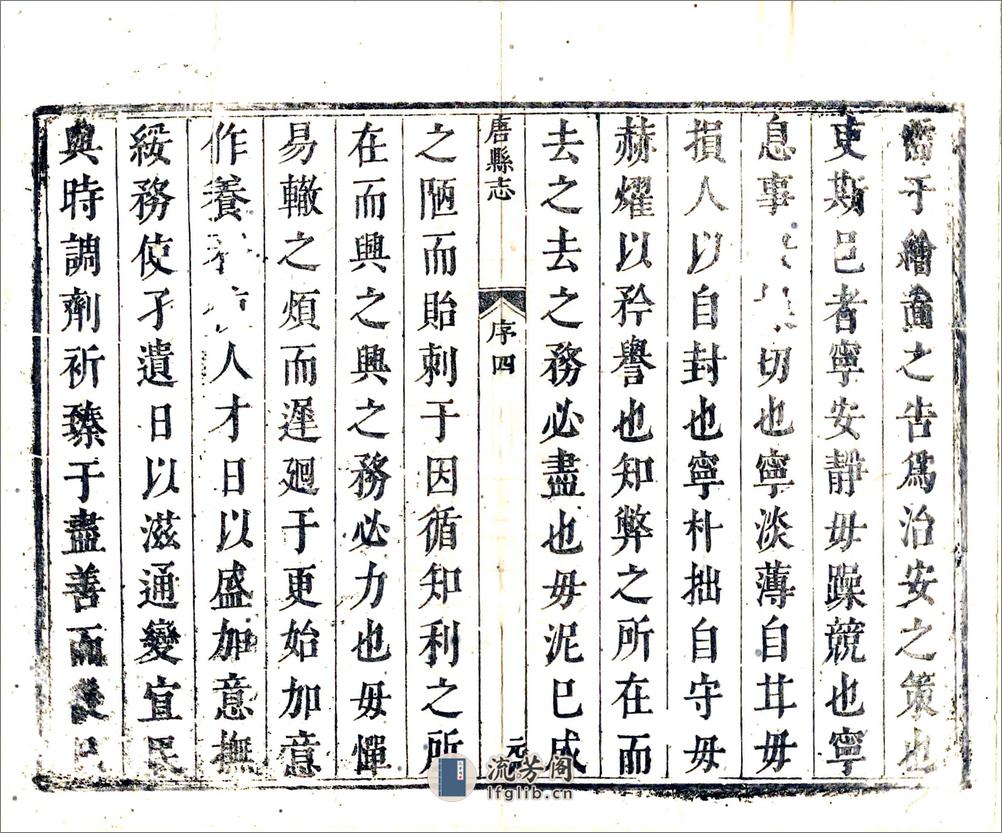 于繪圖之告爲治安之策也
吏斯邑者寧安靜毋躁競也寧
息事切也寧淡薄自甘毋
損人以自封也寧朴拙自守毋
赫耀以矜譽也知弊之所在而
去之去之務必盡也毋泥已成
唐縣志
序四
之陋而貽刺于因循知利之所
在而興之興之務必力也毋憚
易轍之煩而遲廻于更始加意
作養人才日以盛加意撫
綏務使孑遺日以滋通變宜民
與時調劑祈臻于盡善而
流芳阁
lfglib.cn